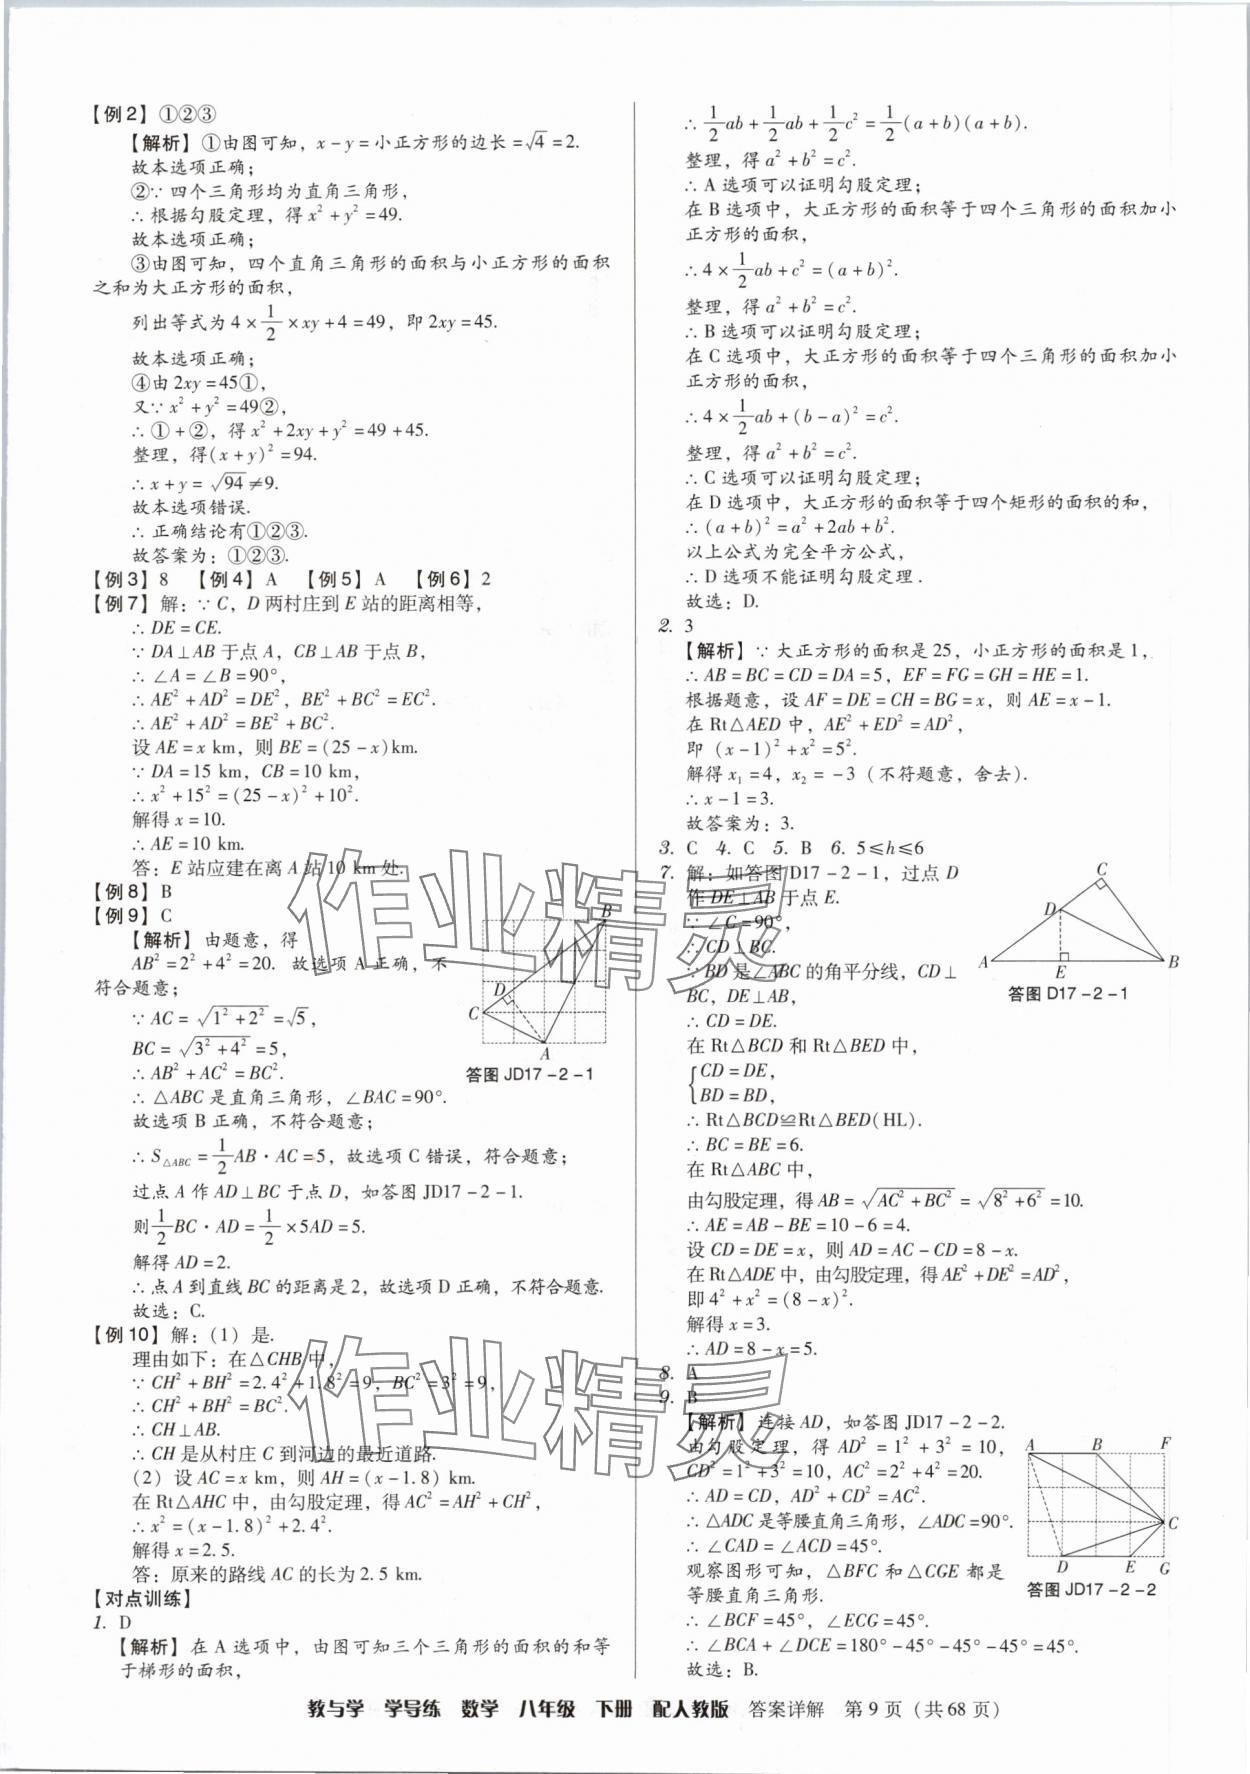 【例2】①②③
【解析】①由图可知，x－y＝小正方形的边长＝√4＝2.
故本选项正确；
②∵四个三角形均为直角三角形，
∴根据勾股定理，得x²＋y²＝49.
故本选项正确；
③由图可知，四个直角三角形的面积与小正方形的面积
之和为大正方形的面积，
列出等式为4×1/2×xy＋4＝49，即2xy＝45.
故本选项正确；
④由2xy＝45①，
又∵x²＋y²＝49②，
∴①＋②，得x²＋2xy＋y²＝49＋45.
整理，得(x＋y)²＝94.
∴x＋y＝√94≠9.
故本选项错误.
∴正确结论有①②③.
故答案为：①②③.
【例3】8　【例4】A　【例5】A　【例6】2
【例7】解：∵C，D两村庄到E站的距离相等，
∴DE＝CE.
∵DA⊥AB于点A，CB⊥AB于点B，
∴∠A＝∠B＝90°，
∴AE²＋AD²＝DE²，BE²＋BC²＝EC².
∴AE²＋AD²＝BE²＋BC².
设AE＝x km，则BE＝(25－x)km.
∵DA＝15 km，CB＝10 km，
∴x²＋15²＝(25－x)²＋10².
解得x＝10.
∴AE＝10 km.
答：E站应建在离A站10 km处.
【例8】B
【例9】C
【解析】由题意，得
AB²＝2²＋4²＝20. 故选项A正确，不
符合题意；
∵AC＝√(1²＋2²)＝√5，
BC＝√(3²＋4²)＝5，
∴AB²＋AC²＝BC².
∴△ABC是直角三角形，∠BAC＝90°.
故选项B正确，不符合题意；
∴S△ABC＝1/2AB·AC＝5，故选项C错误，符合题意；
过点A作AD⊥BC于点D，如答图JD17－2－1.
则1/2BC·AD＝1/2×5AD＝5.
解得AD＝2.
∴点A到直线BC的距离是2，故选项D正确，不符合题意.
故选：C.
B
D
C
A
答图 JD17－2－1
【例10】解：(1)是.
理由如下：在△CHB中，
∵CH²＋BH²＝2.4²＋1.8²＝9，BC²＝3²＝9，
∴CH²＋BH²＝BC².
∴CH⊥AB.
∴CH是从村庄C到河边的最近道路.
(2)设AC＝x km，则AH＝(x－1.8) km.
在Rt△AHC中，由勾股定理，得AC²＝AH²＋CH²，
∴x²＝(x－1.8)²＋2.4².
解得x＝2.5.
答：原来的路线AC的长为2.5 km.
【对点训练】
1. D
【解析】在A选项中，由图可知三个三角形的面积的和等
于梯形的面积，
∴1/2ab＋1/2ab＋1/2c²＝1/2(a＋b)(a＋b).
整理，得a²＋b²＝c².
∴A选项可以证明勾股定理；
在B选项中，大正方形的面积等于四个三角形的面积加小
正方形的面积，
∴4×1/2ab＋c²＝(a＋b)².
整理，得a²＋b²＝c².
∴B选项可以证明勾股定理；
在C选项中，大正方形的面积等于四个三角形的面积加小
正方形的面积，
∴4×1/2ab＋(b－a)²＝c².
整理，得a²＋b²＝c².
∴C选项可以证明勾股定理；
在D选项中，大正方形的面积等于四个矩形的面积的和，
∴(a＋b)²＝a²＋2ab＋b².
以上公式为完全平方公式，
∴D选项不能证明勾股定理.
故选：D.
2. 3
【解析】∵大正方形的面积是25，小正方形的面积是1，
∴AB＝BC＝CD＝DA＝5，EF＝FG＝GH＝HE＝1.
根据题意，设AF＝DE＝CH＝BG＝x，则AE＝x－1.
在Rt△AED中，AE²＋ED²＝AD²，
即(x－1)²＋x²＝5².
解得x₁＝4，x₂＝－3（不符题意，舍去）.
∴x－1＝3.
故答案为：3.
3. C 4. C 5. B 6. 5≤h≤6
7. 解：如答图D17－2－1，过点D
作DE⊥AB于点E.
∵∠C＝90°，
∴CD⊥BC.
∵BD是∠ABC的角平分线，CD⊥
BC，DE⊥AB，
∴CD＝DE.
在Rt△BCD和Rt△BED中，
{CD＝DE，
BD＝BD，
∴Rt△BCD≌Rt△BED(HL).
∴BC＝BE＝6.
在Rt△ABC中，
由勾股定理，得AB＝√(AC²＋BC²)＝√(8²＋6²)＝10.
∴AE＝AB－BE＝10－6＝4.
设CD＝DE＝x，则AD＝AC－CD＝8－x.
在Rt△ADE中，由勾股定理，得AE²＋DE²＝AD²，
即4²＋x²＝(8－x)².
解得x＝3.
∴AD＝8－x＝5.
C
D
A E B
答图 D17－2－1
8. A
9. B
【解析】连接AD，如答图JD17－2－2.
由勾股定理，得AD²＝1²＋3²＝10，
CD²＝1²＋3²＝10，AC²＝2²＋4²＝20.
∴AD＝CD，AD²＋CD²＝AC².
∴△ADC是等腰直角三角形，∠ADC＝90°.
∴∠CAD＝∠ACD＝45°.
观察图形可知，△BFC和△CGE都是
等腰直角三角形.
∴∠BCF＝45°，∠ECG＝45°.
∴∠BCA＋∠DCE＝180°－45°－45°－45°＝45°.
故选：B.
A B F
C
D E G
答图 JD17－2－2
作业精灵
作业精灵
教与学　学导练　数学　八年级　下册　配人教版　答案详解　第9页（共68页）